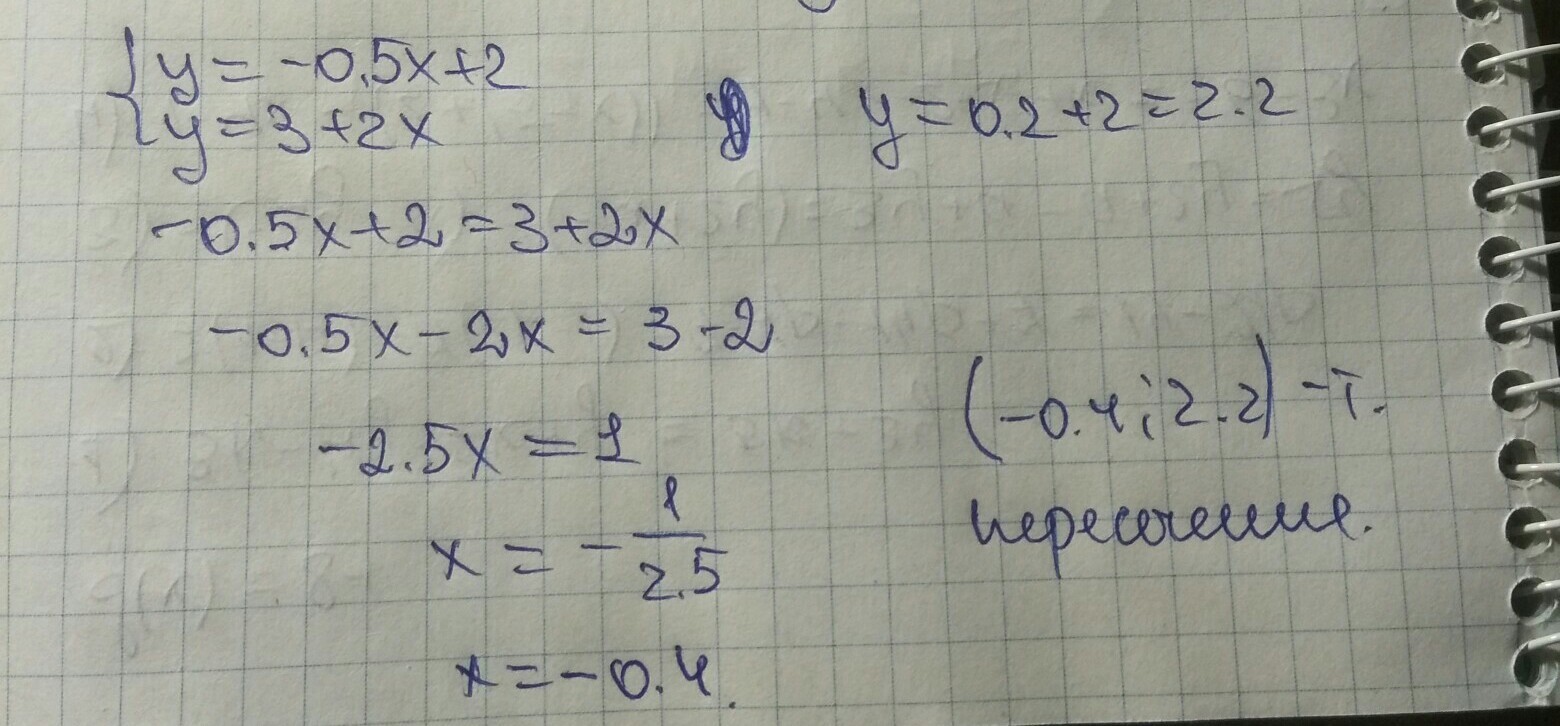 { y = -0.5x+2
y = 3+2x
-0.5x+2 = 3+2x
-0.5x - 2x = 3-2
-2.5x = 1
x = - 1/2.5
x = -0.4.
y = 0.2+2 = 2.2
(-0.4; 2.2) - т.
пересечение.